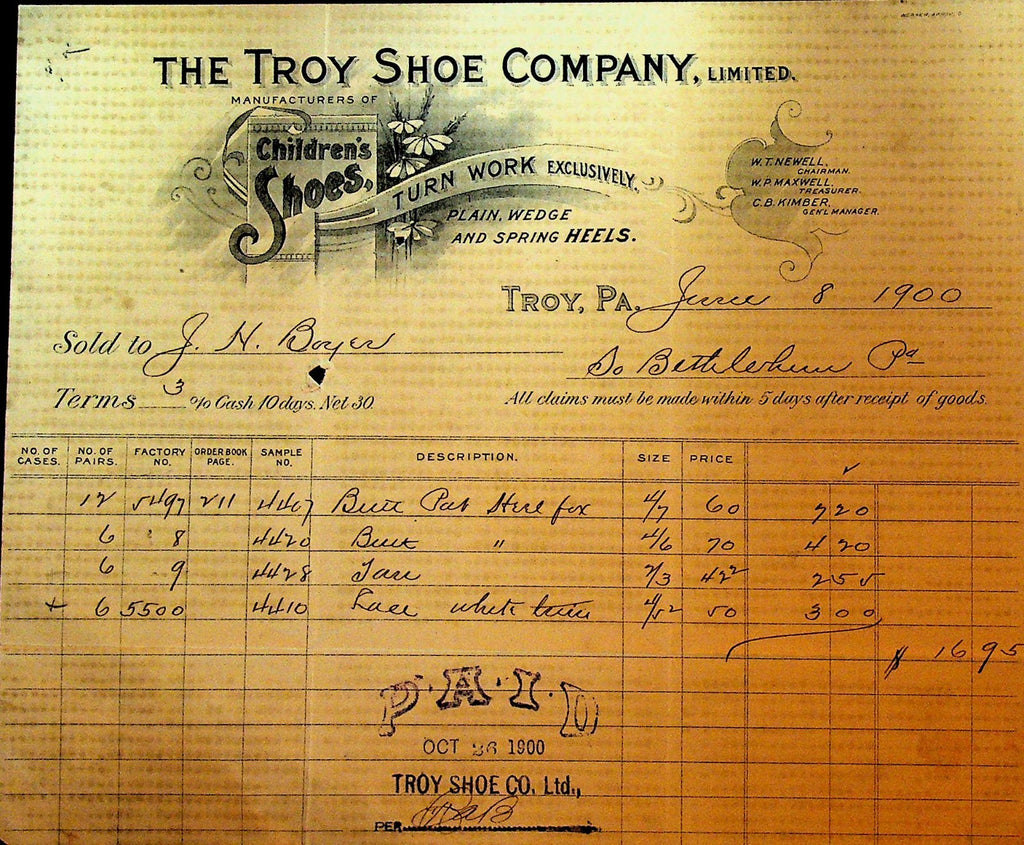 THE TROY SHOE COMPANY, LIMITED.
MANUFACTURERS OF
Children's
Shoes,
TURN WORK EXCLUSIVELY.
PLAIN, WEDGE
AND SPRING HEELS.
W. T. NEWELL,
CHAIRMAN.
W. P. MAXWELL,
TREASURER.
C. B. KIMBER,
GEN'L MANAGER.
TROY, PA. June 8 1900
Sold to J. H. Boyer
So Bethlehem Pa
Terms 3 % Cash 10 days. Net 30.
All claims must be made within 5 days after receipt of goods.
NO. OF CASES. NO. OF PAIRS. FACTORY NO. ORDER BOOK PAGE. SAMPLE NO. DESCRIPTION. SIZE PRICE
12 5497 211 4407 Butt Pat Heel fox 4/7 60 720
6 8 4420 Butt " 4/6 70 420
6 9 4428 Tan 2/3 42½ 255
+ 6 5500 4410 Lace white 50 300
$ 16 95
P.A.I.D
OCT 26 1900
TROY SHOE CO. Ltd.,
PER